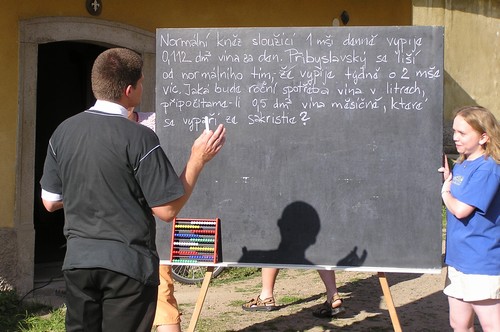 Normální kněz sloužící 1 mši denně vypije
0,112 dm³ vína za den. Přibyslavský se liší
od normálního tím, že vypije týdně o 2 mše
víc. Jaká bude roční spotřeba vína v litrech,
připočítáme-li 0,5 dm³ vína měsíčně, které
se vypaří za sakristie?